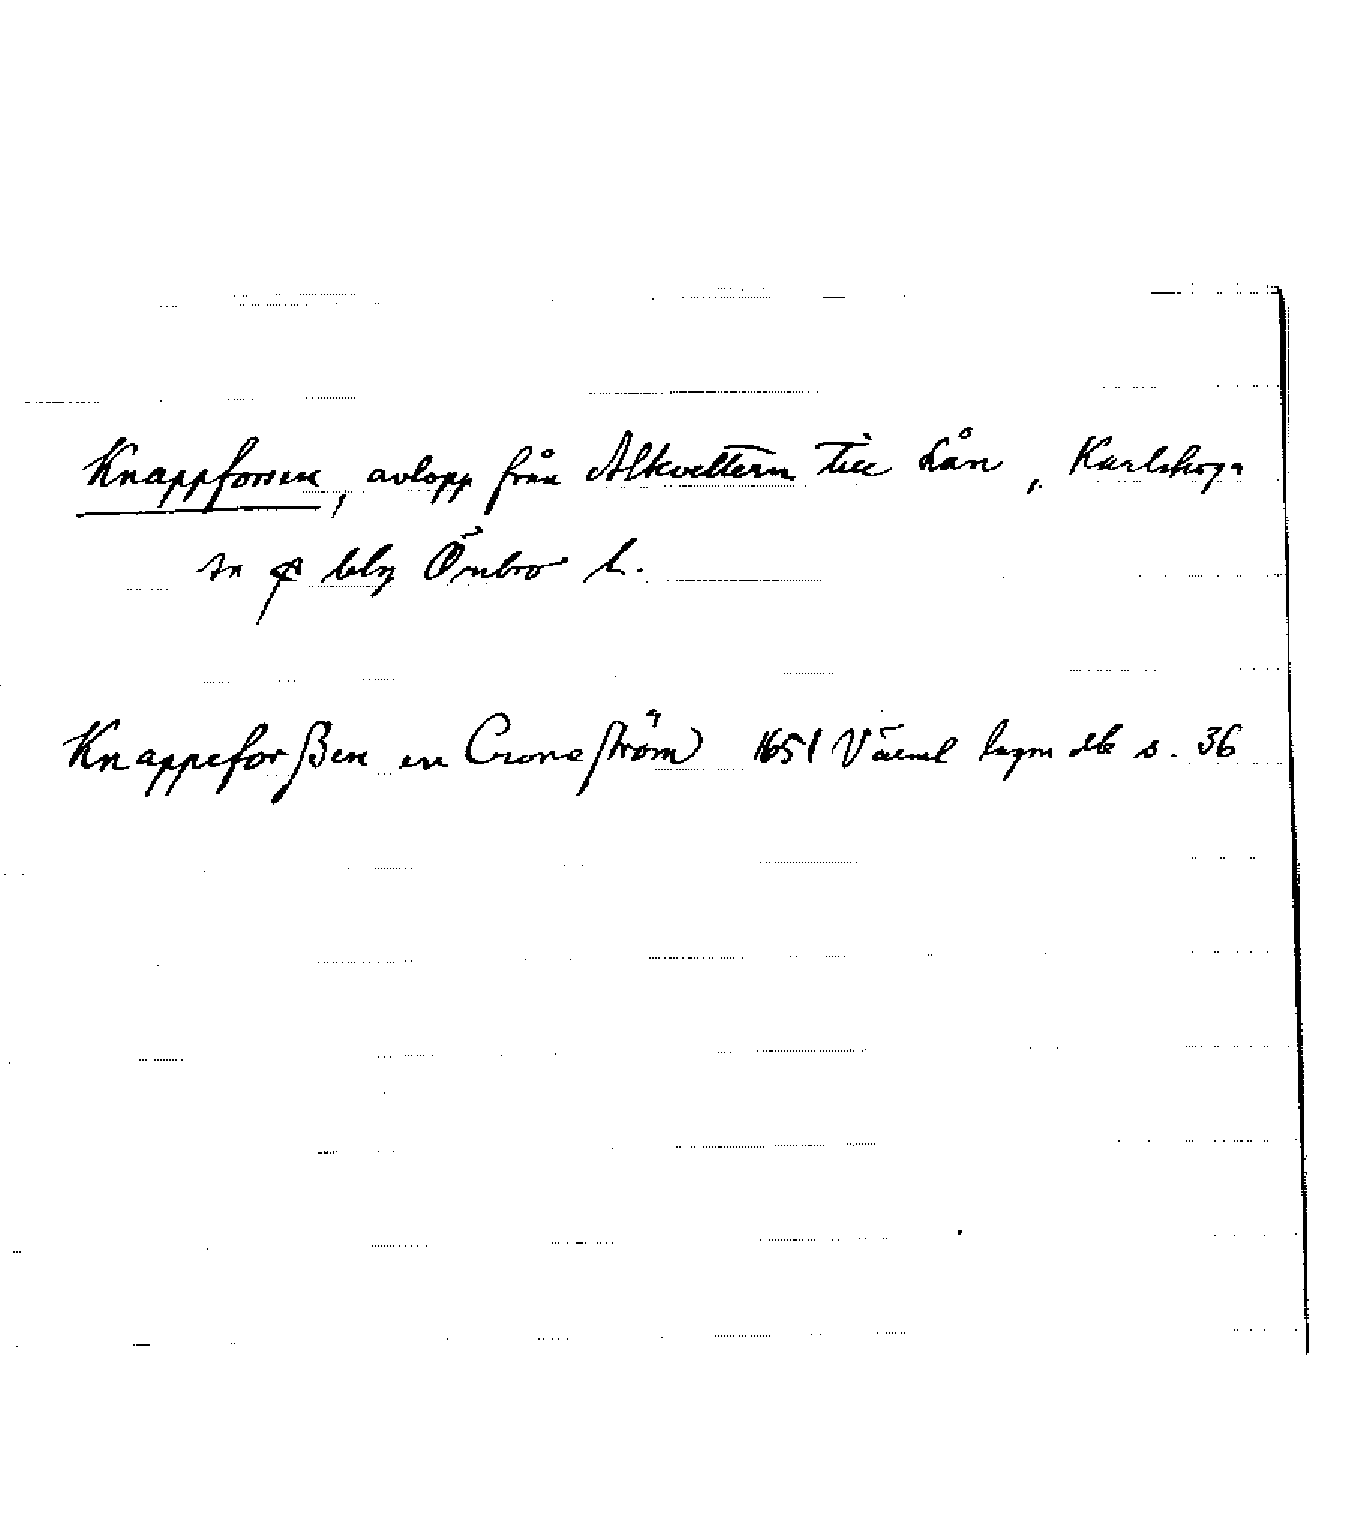 Knappforsen, avlopp från Alkvettern till Lån, Karlskoga
sn blg Örebro l.
Knappeforßen en Croneström 1651 Värml lagm db s. 36